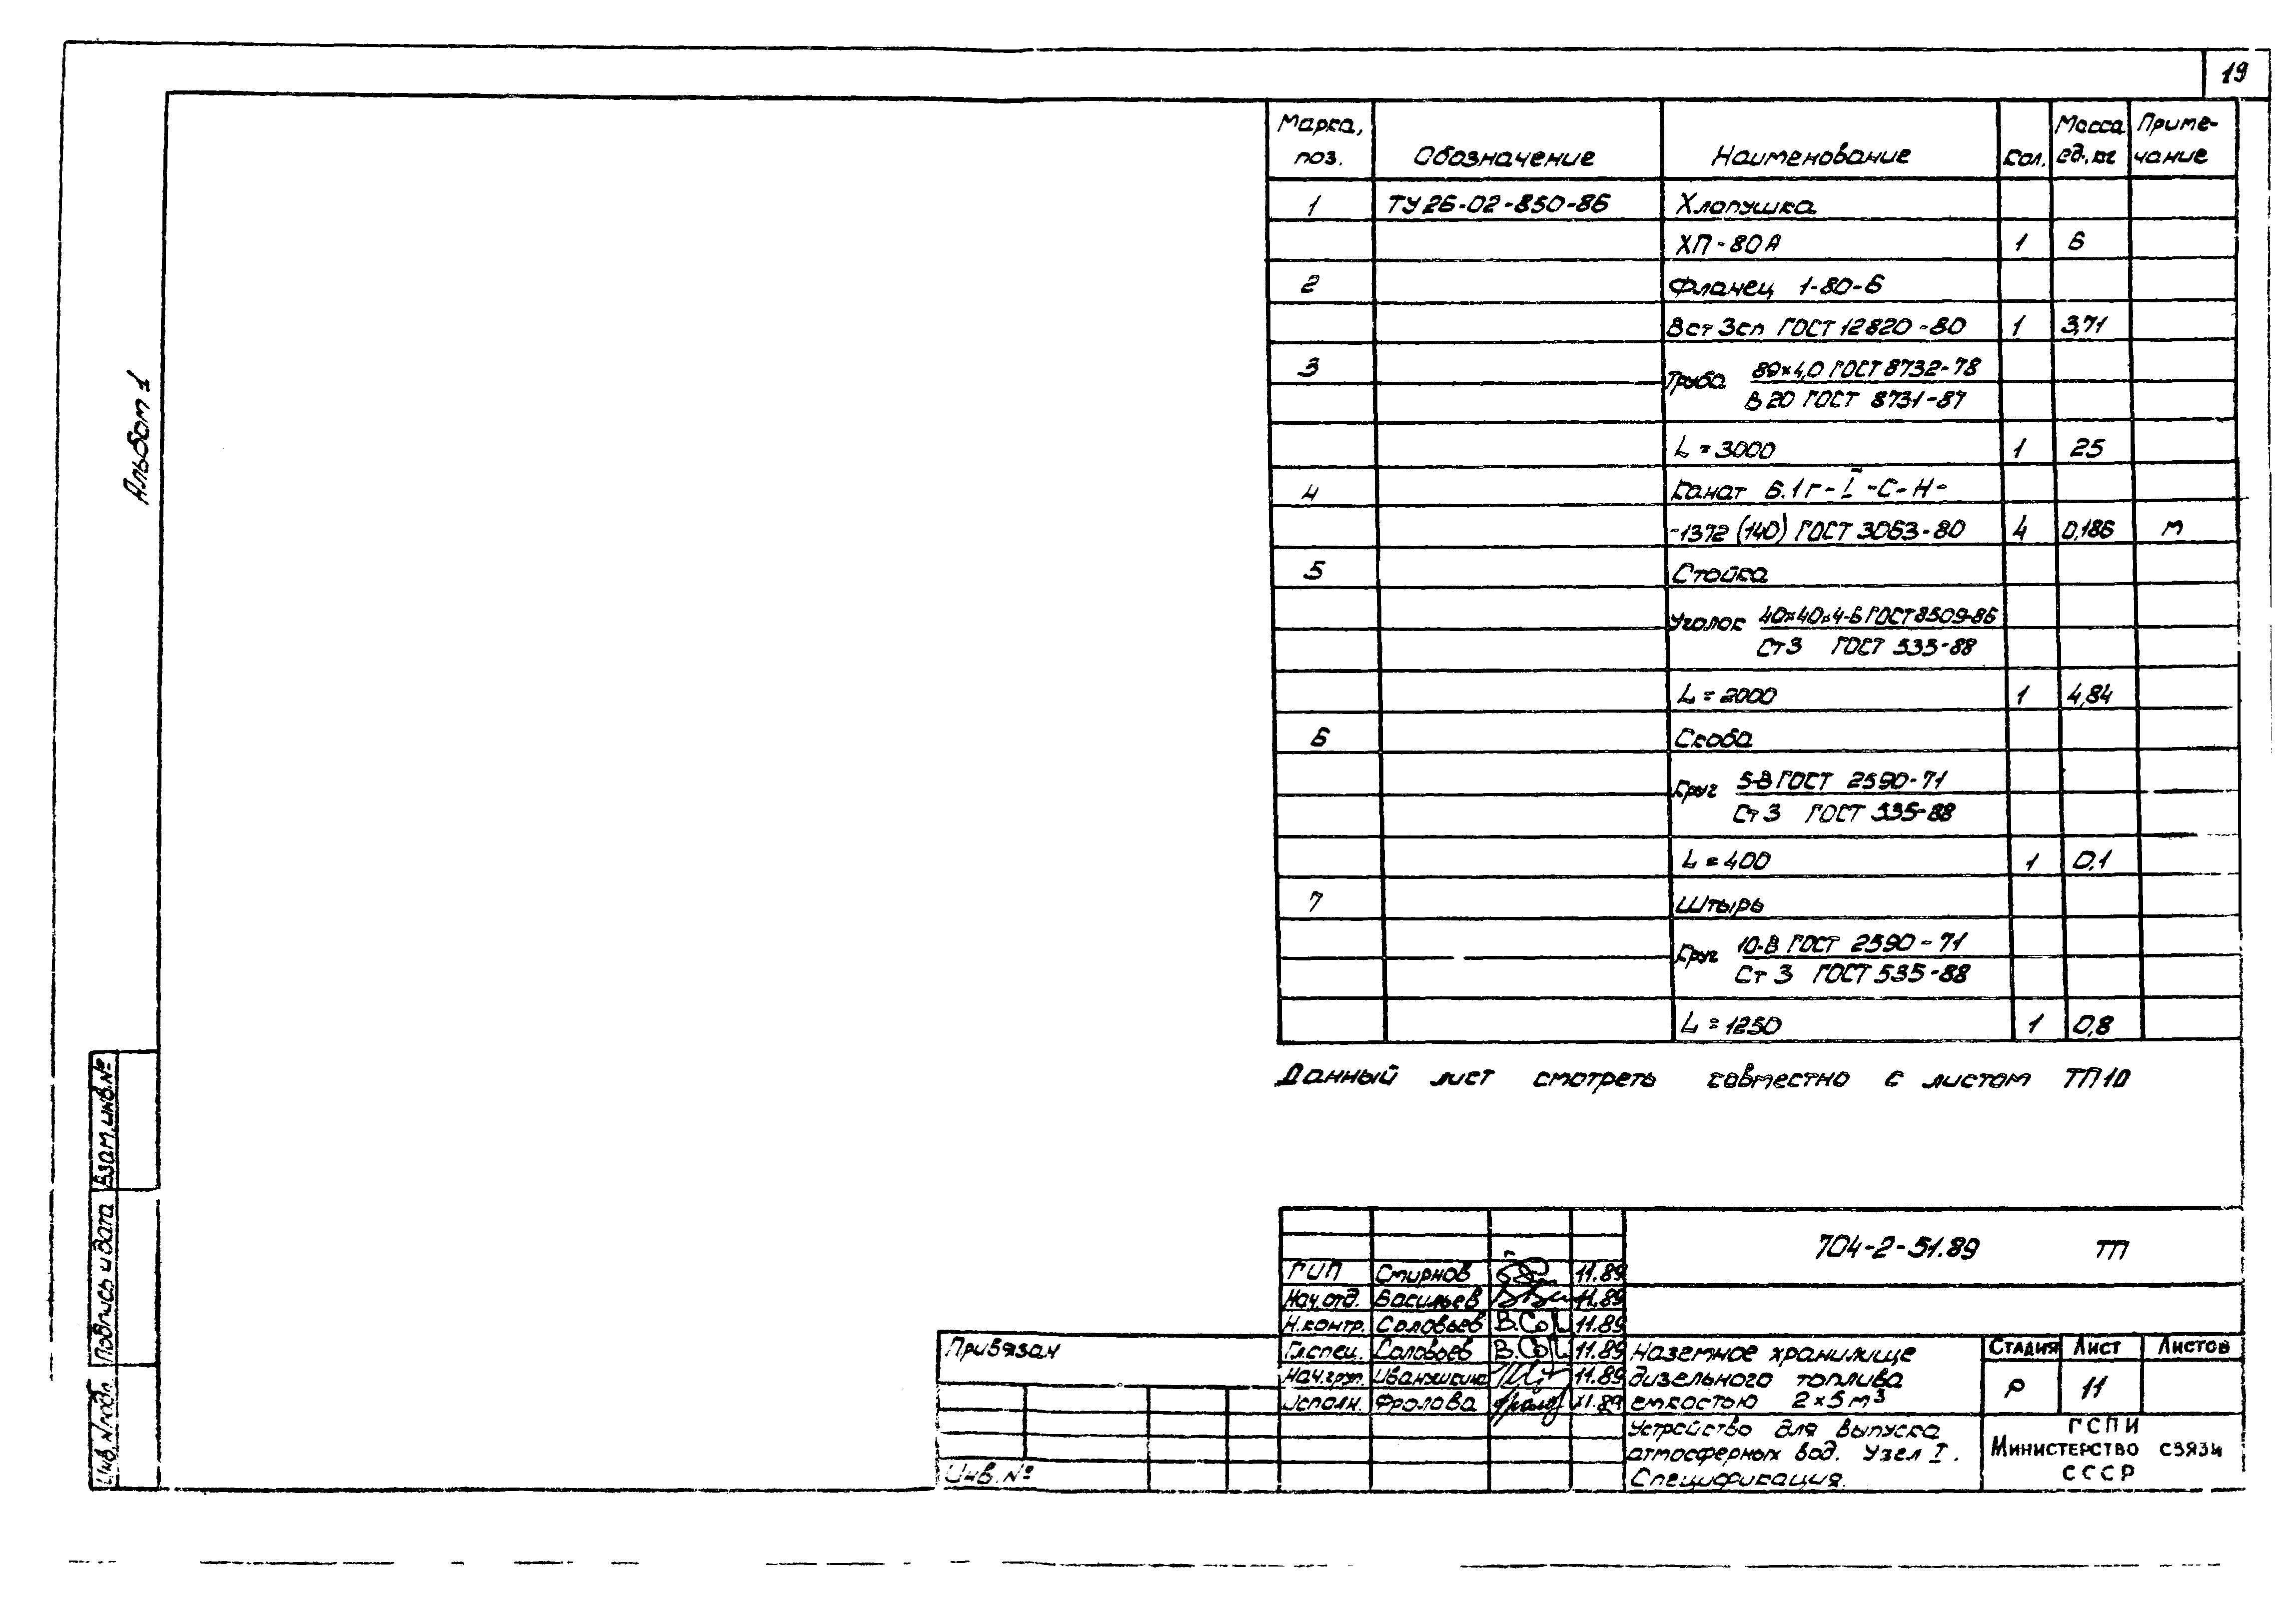 19
Альбом 1
Марка, поз. Обозначение Наименование Кол. Масса ед., кг Приме-чание
1 ТУ 26-02-850-86 Хлопушка
ХП-80А 1 6
2 Фланец 1-80-6
Вст 3сп ГОСТ 12820-80 1 3,71
3 Труба 89×4,0 ГОСТ 8732-78
В 20 ГОСТ 8731-87
L = 3000 1 25
4 Канат 6.1г-I-С-Н-
-1372 (140) ГОСТ 3063-80 4 0,186 м
5 Стойка
Уголок 40×40×4-Б ГОСТ 8509-86
Ст3 ГОСТ 535-88
L = 2000 1 4,84
6 Скоба
Круг 5-В ГОСТ 2590-71
Ст 3 ГОСТ 535-88
L = 400 1 0,1
7 Штырь
Круг 10-В ГОСТ 2590-71
Ст 3 ГОСТ 535-88
L = 1250 1 0,8
Данный лист смотреть совместно с листом ТП10
704-2-51.89 ТП
ГИП Смирнов 11.89
Нач.отд. Васильев 11.89
Н.контр. Соловьев В.Сол 11.89
Гл.спец. Соловьев В.Сол 11.89
Нач.груп. Иванушкина 11.89
Исполн. Фролова 11.89
Наземное хранилище
дизельного топлива
емкостью 2×5 м³
Стадия Лист Листов
Р 11
Устройство для выпуска
атмосферных вод. Узел I.
Спецификация.
ГСПИ
Министерство связи
СССР
Привязан
Инв.№
Взам.инв.№
Подпись и дата
Инв.№подл.